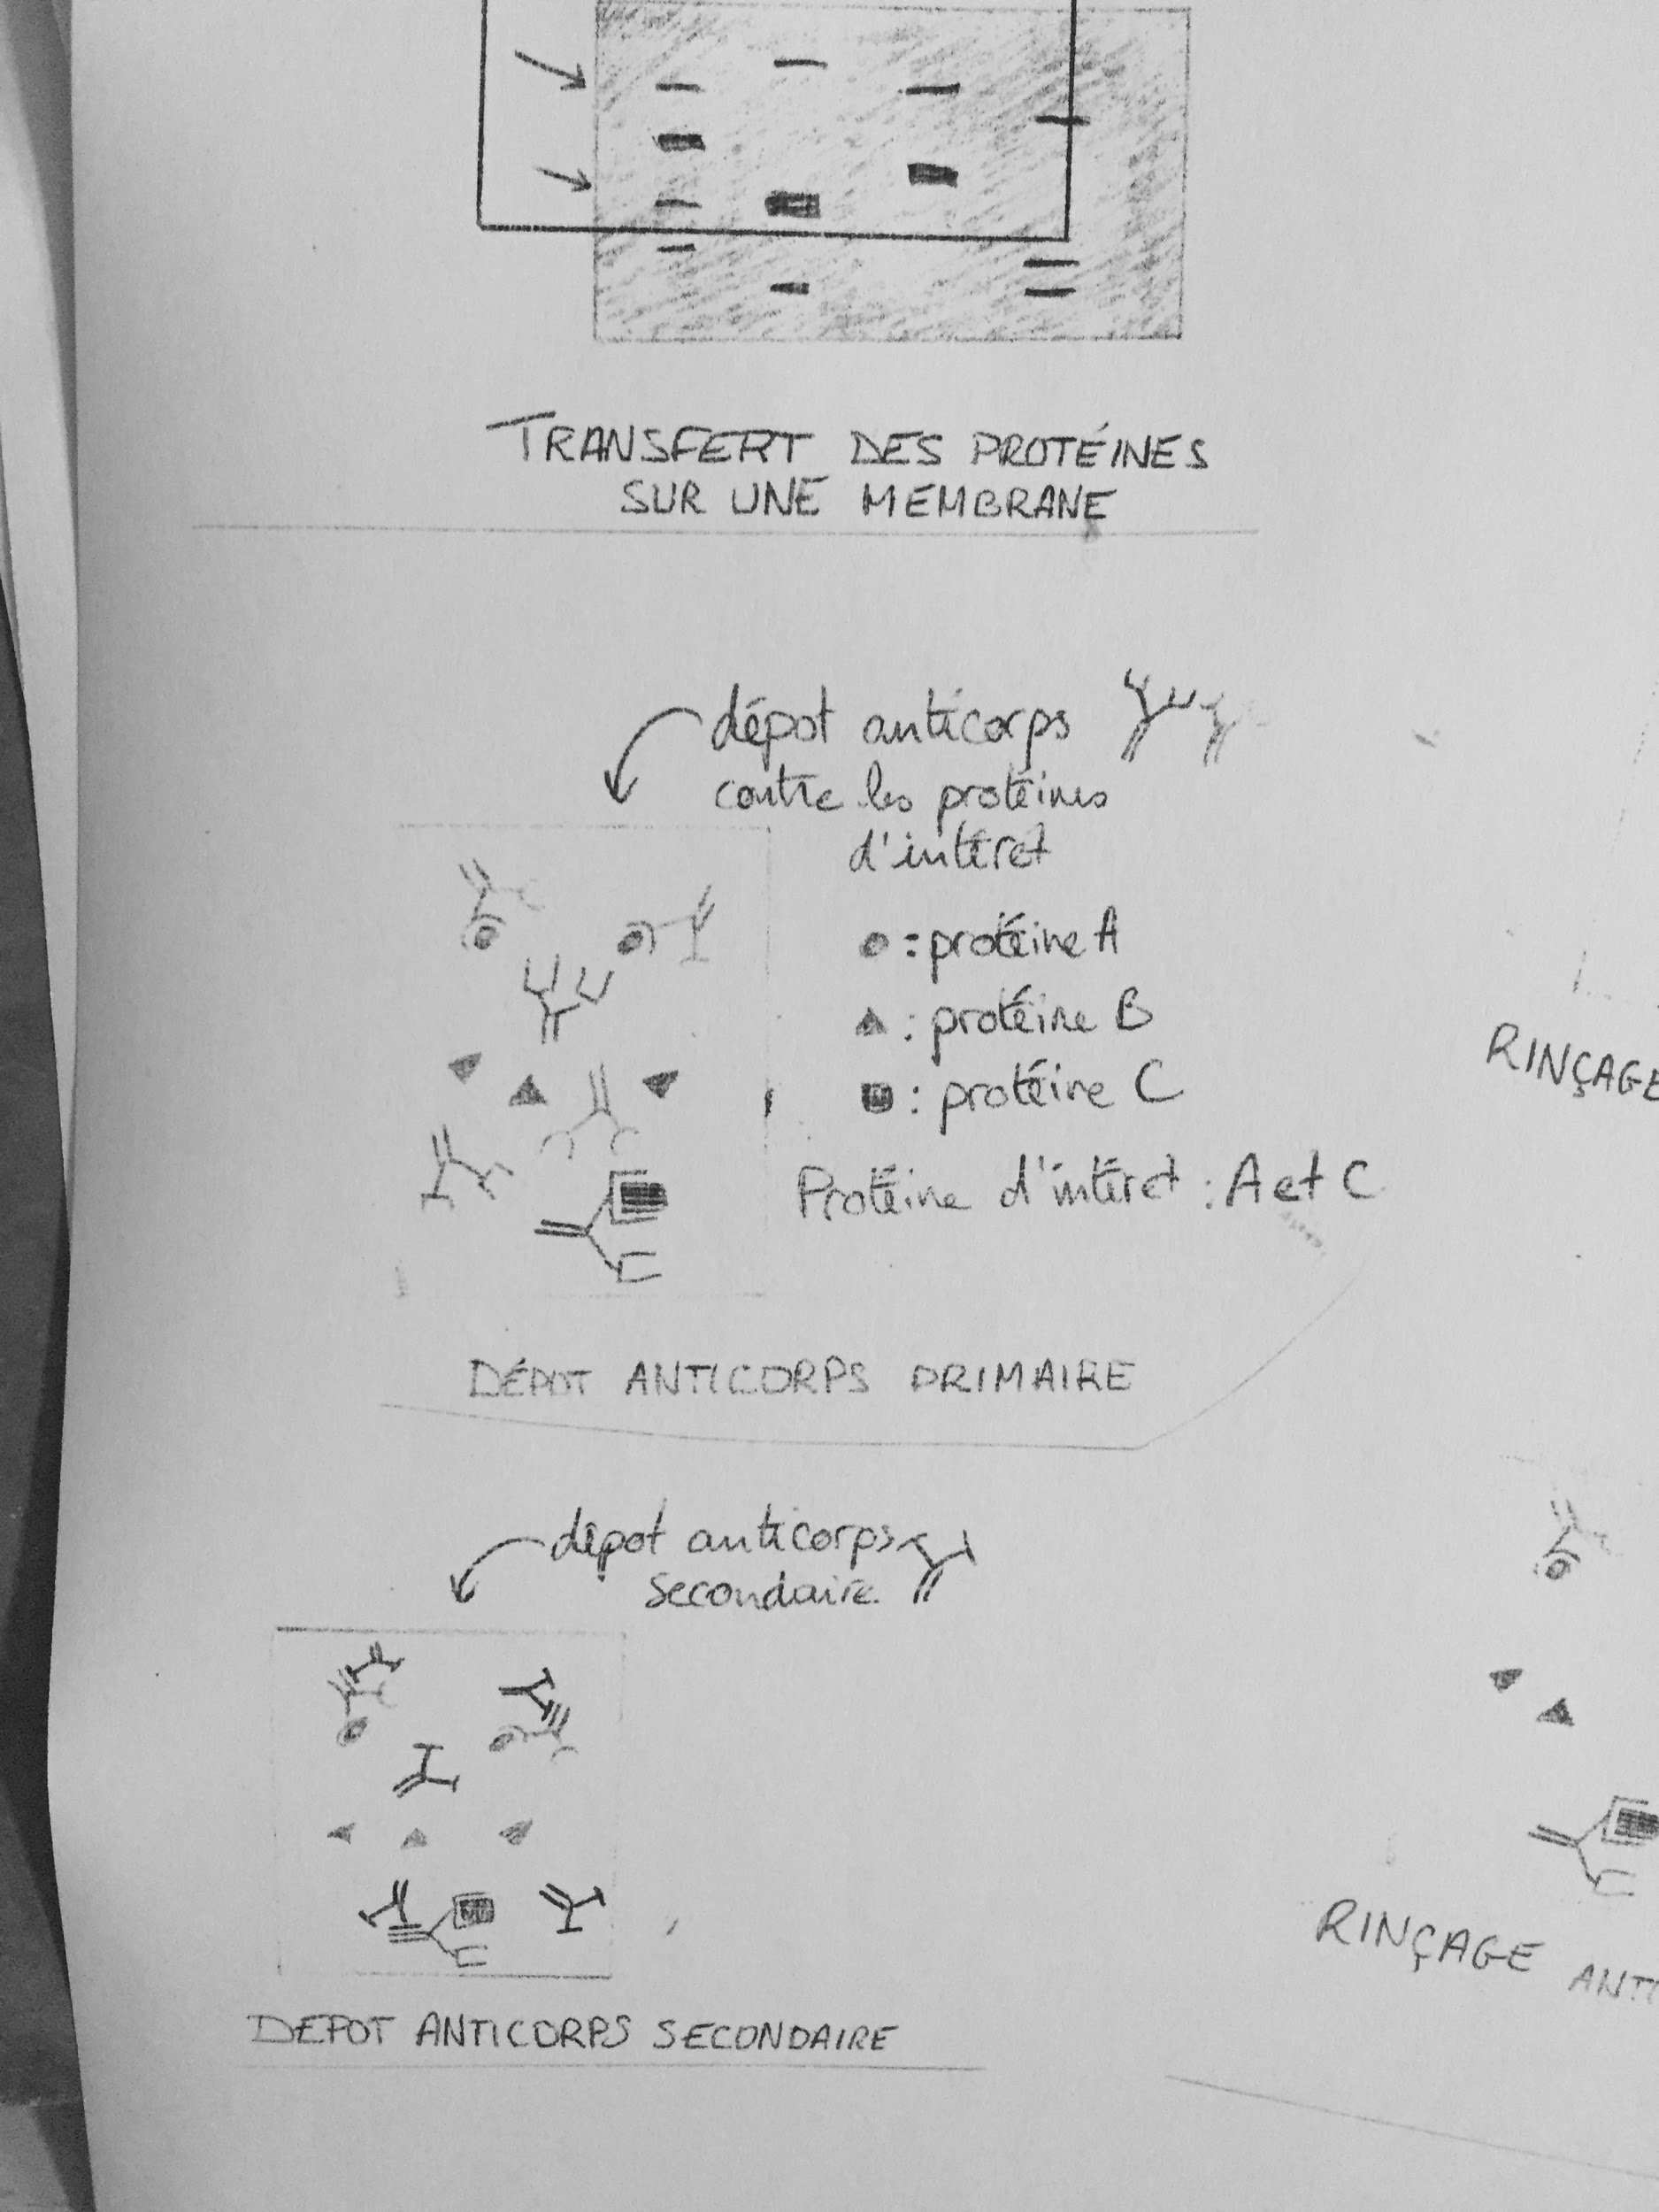 TRANSFERT DES PROTÉINES
SUR UNE MEMBRANE
dépot anticorps
contre les protéines
d'intéret
: protéine A
: protéine B
: protéine C
Protéine d'intéret : A et C
DÉPOT ANTICORPS PRIMAIRE
RINÇAGE
dépot anticorps
secondaire.
DEPOT ANTICORPS SECONDAIRE
RINÇAGE ANTI